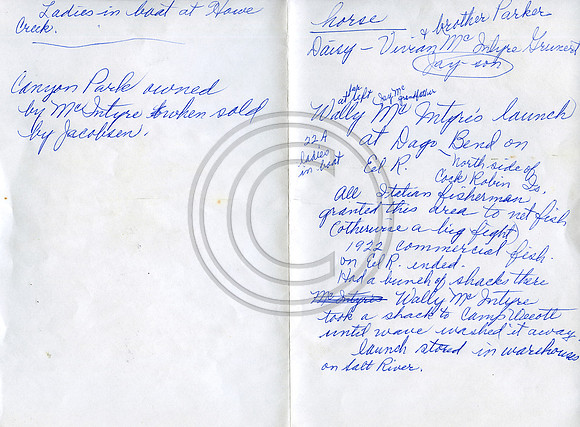 Ladies in boat at Howe
Creek.
Canyon Park owned
by McIntyre when sold
by Jacobsen.
horse
& brother Parker
Daisy – Vivian McIntyre Grunert
Jay – son
at far left
Jay Mc grandfather
Wally McIntyre's launch
at Dago Bend on
Eel R. North side of
Cock Robin Is.
22A
ladies
in boat
All Italian fisherman
granted this area to net fish
(otherwise a big fight)
1922 commercial fish.
on Eel R. ended.
Had a bunch of shacks there
McIntyres Wally McIntyre
took a shack to Camp Weott
until wave washed it away.
launch stored in warehouse
on Salt River.
©